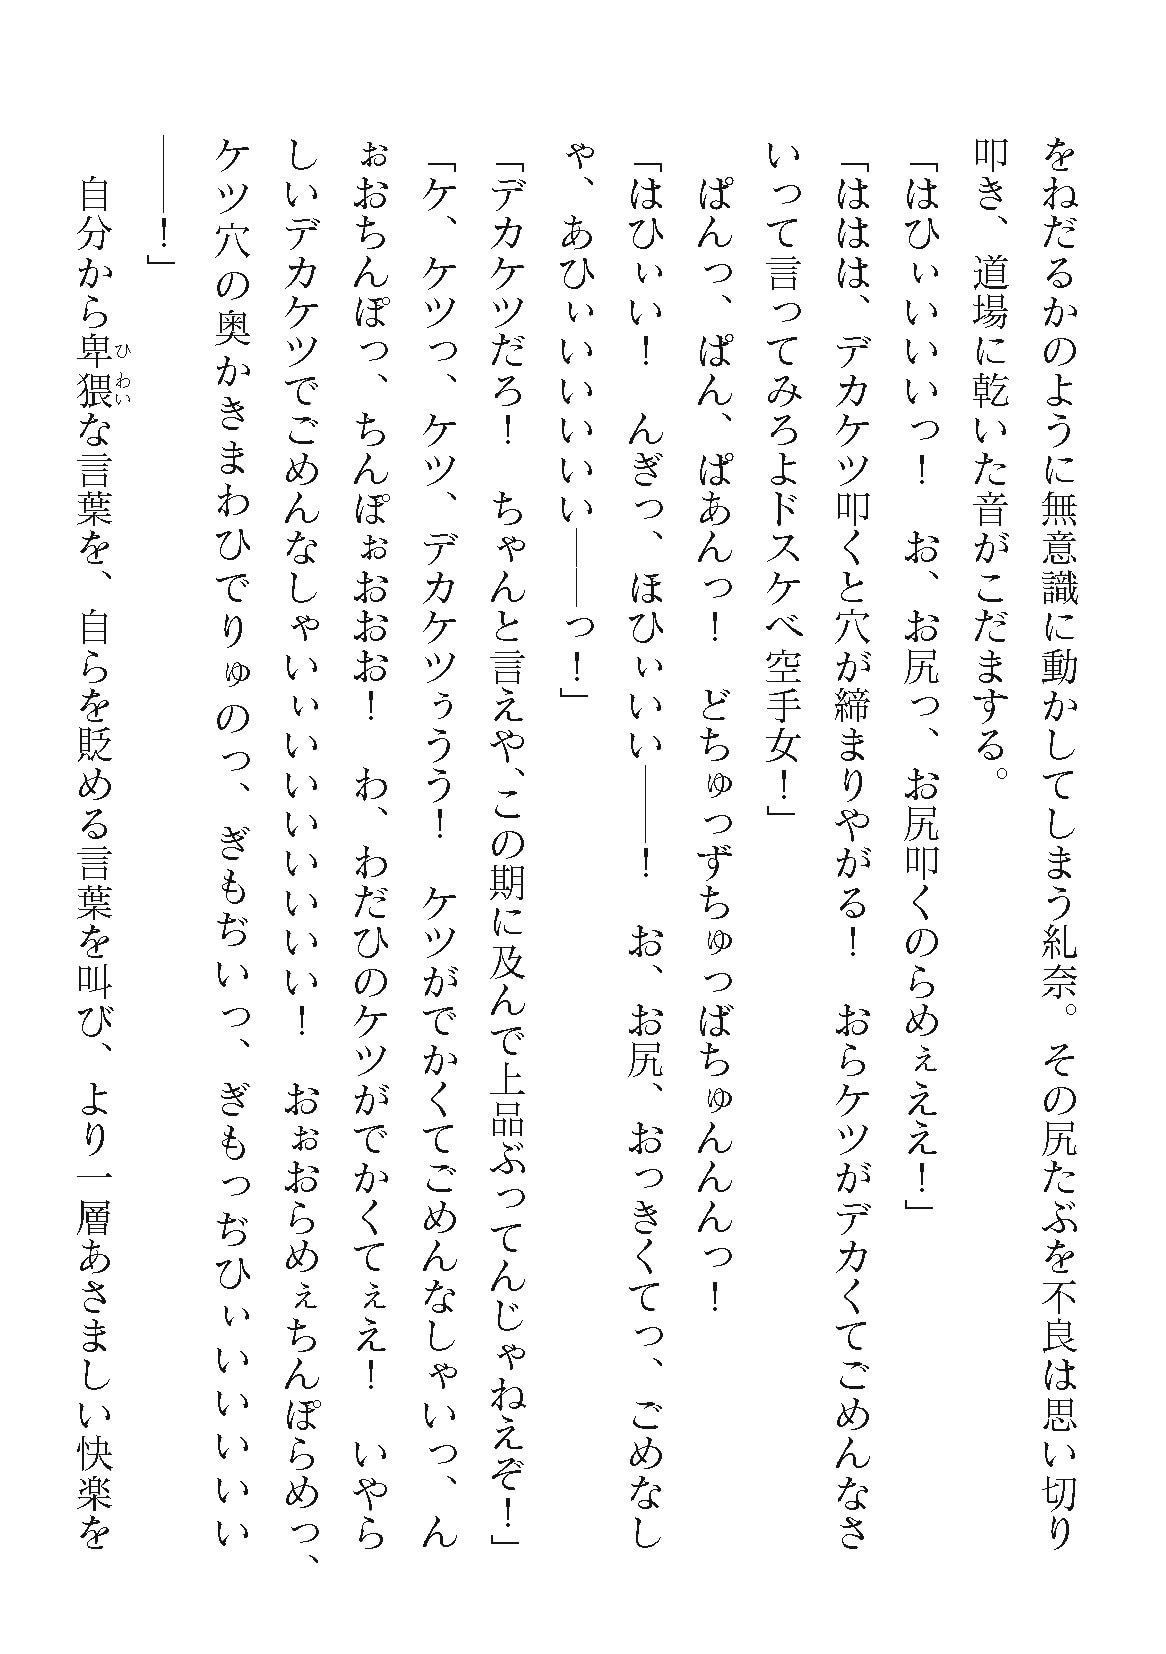 をねだるかのように無意識に動かしてしまう糺奈。その尻たぶを不良は思い切り
叩き、道場に乾いた音がこだまする。
「はひぃいいいっ！　お、お尻っ、お尻叩くのらめぇええ！」
「ははは、デカケツ叩くと穴が締まりやがる！　おらケツがデカくてごめんなさ
いって言ってみろよドスケベ空手女！」
　ぱんっ、ぱん、ぱあんっ！　どちゅっずちゅっばちゅんんんっ！
「はひぃい！　んぎっ、ほひぃいい――！　お、お尻、おっきくてっ、ごめなし
ゃ、あひぃいいいいい――っ！」
「デカケツだろ！　ちゃんと言えや、この期に及んで上品ぶってんじゃねえぞ！」
「ケ、ケツっ、ケツ、デカケツぅうう！　ケツがでかくてごめんなしゃいっ、ん
ぉおちんぽっ、ちんぽぉおおお！　わ、わだひのケツがでかくてぇえ！　いやら
しいデカケツでごめんなしゃいぃいいいいいいい！　おぉおらめぇちんぽらめっ、
ケツ穴の奥かきまわひでりゅのっ、ぎもぢいっ、ぎもっぢひぃいいいいい
――！」
　自分から卑猥な言葉を、自らを貶める言葉を叫び、より一層あさましい快楽を